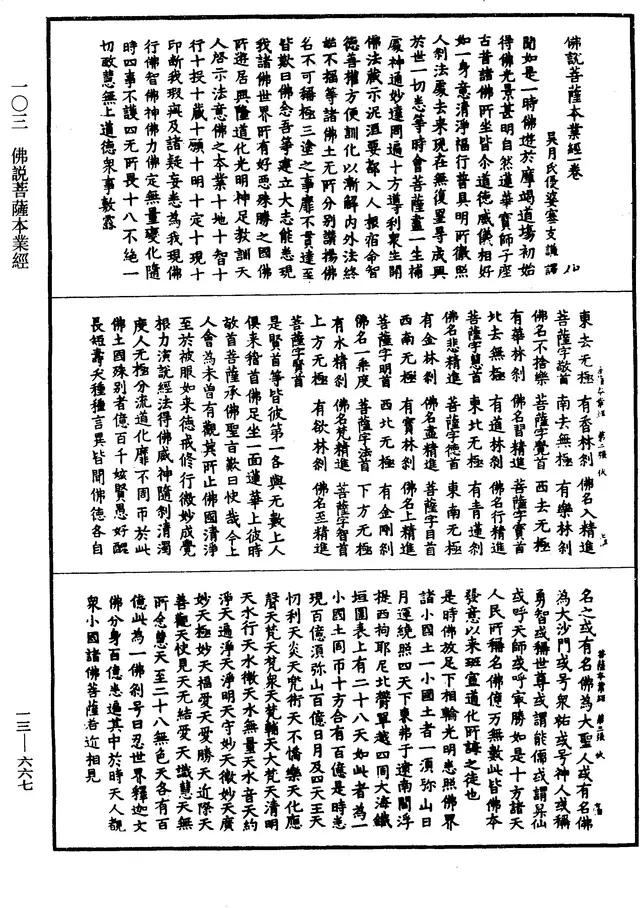 佛說菩薩本業經一卷
吳月氏優婆塞支謙譯
聞如是一時佛遊於摩竭道場初始
得佛光景甚明自然蓮華寶師子座
古昔諸佛所坐皆介道德威儀相好
如一身意清淨福行普具明所徹照
人剎法處去來現在無復罣㝵成興
於世一切悉等時會菩薩盡一生補
處神通妙達周遍十方導利衆生開
佛法藏示泥洹要都入人根宿命智
德善權方便訓化以漸解內外法終
始不損等諸佛土无所分別讚揚佛
名不可稱極三塗之事靡不貫達至
皆歎曰佛念吾等建立大志能悉現
我諸佛世界所有好惡殊勝之國佛
所遊居興隆道化光明神足教訓天
人啓示法意佛之本業十地十智十
行十投十藏十願十明十定十現十
印斷我瑕與及諸疑妄悉為我現佛
行佛智佛神佛力佛定無量變化隨
時四事不護四无所畏十八不絶一
切敏慧無上道德衆事敷露
東去无極 有香林剎 佛名入精進
菩薩字敬首 南去無極 有樂林剎
佛名不捨樂 菩薩字覺首 西去无極
有華林剎 佛名習精進 菩薩字寶首
北去無極 有道林剎 佛名行精進
菩薩字慧首 東北无極 有青蓮剎
佛名悲精進 菩薩字德首 東南无極
有金林剎 佛名盡精進 菩薩字目首
西南无極 有寶林剎 佛名上精進
菩薩字明首 西北无極 有金剛剎
佛名一乘度 菩薩字法首 下方无極
有水精剎 佛名梵精進 菩薩字智首
上方无極 有欲林剎 佛名至精進
菩薩字賢首
是賢首等皆彼第一各與无數上人
俱來稽首佛足坐一面蓮華上彼時
敬首菩薩承佛聖旨歎曰快哉今上
人會為未曾有觀其所止佛國清淨
至於被服如來德戒修行微妙成覺
根力演說經法得佛威神隨剎清濁
度人无極分流道化靡不周帀於此
佛土國殊別者億百千姟賢愚好醜
長短壽夭種種言異皆聞佛德各自
菩薩本業經 第二張 伏
名之或有名佛為大聖人或有名佛
為大沙門或号衆祐或号神人或稱
勇智或稱世尊或謂能儒或謂昇仙
或呼天師或呼㝡勝如是十方諸天
人民所稱名佛億万無數此皆佛本
發意以來班宣道化所誨之徒也
是時佛放足下相輪光明悉照佛界
諸小國土一小國土者一須弥山日
月運繞照四天下東弗于逮南閻浮
提西拘耶尼北欝單越四周大海鐵
垣圍表上有二十八天如此者為一
小國土周帀十方合有百億是時悉
現百億須弥山百億日月及四天王天
忉利天炎天兜術天不憍樂天化應
聲天梵天梵衆天梵輔天大梵天清明
天水行天水微天水無量天水音天約
淨天遍淨天淨明天守妙天微妙天廣
妙天極妙天福愛天愛勝天近際天
善觀天快見天无結愛天識慧天無
所念慧天至二十八無色天各有百
億此為一佛剎号曰忍世界釋迦文
佛分身百億悉遍其中於時天人觀
衆小國諸佛菩薩若近相見
菩薩本業經 第三張 伏
一〇三 佛說菩薩本業經
一三—六六七